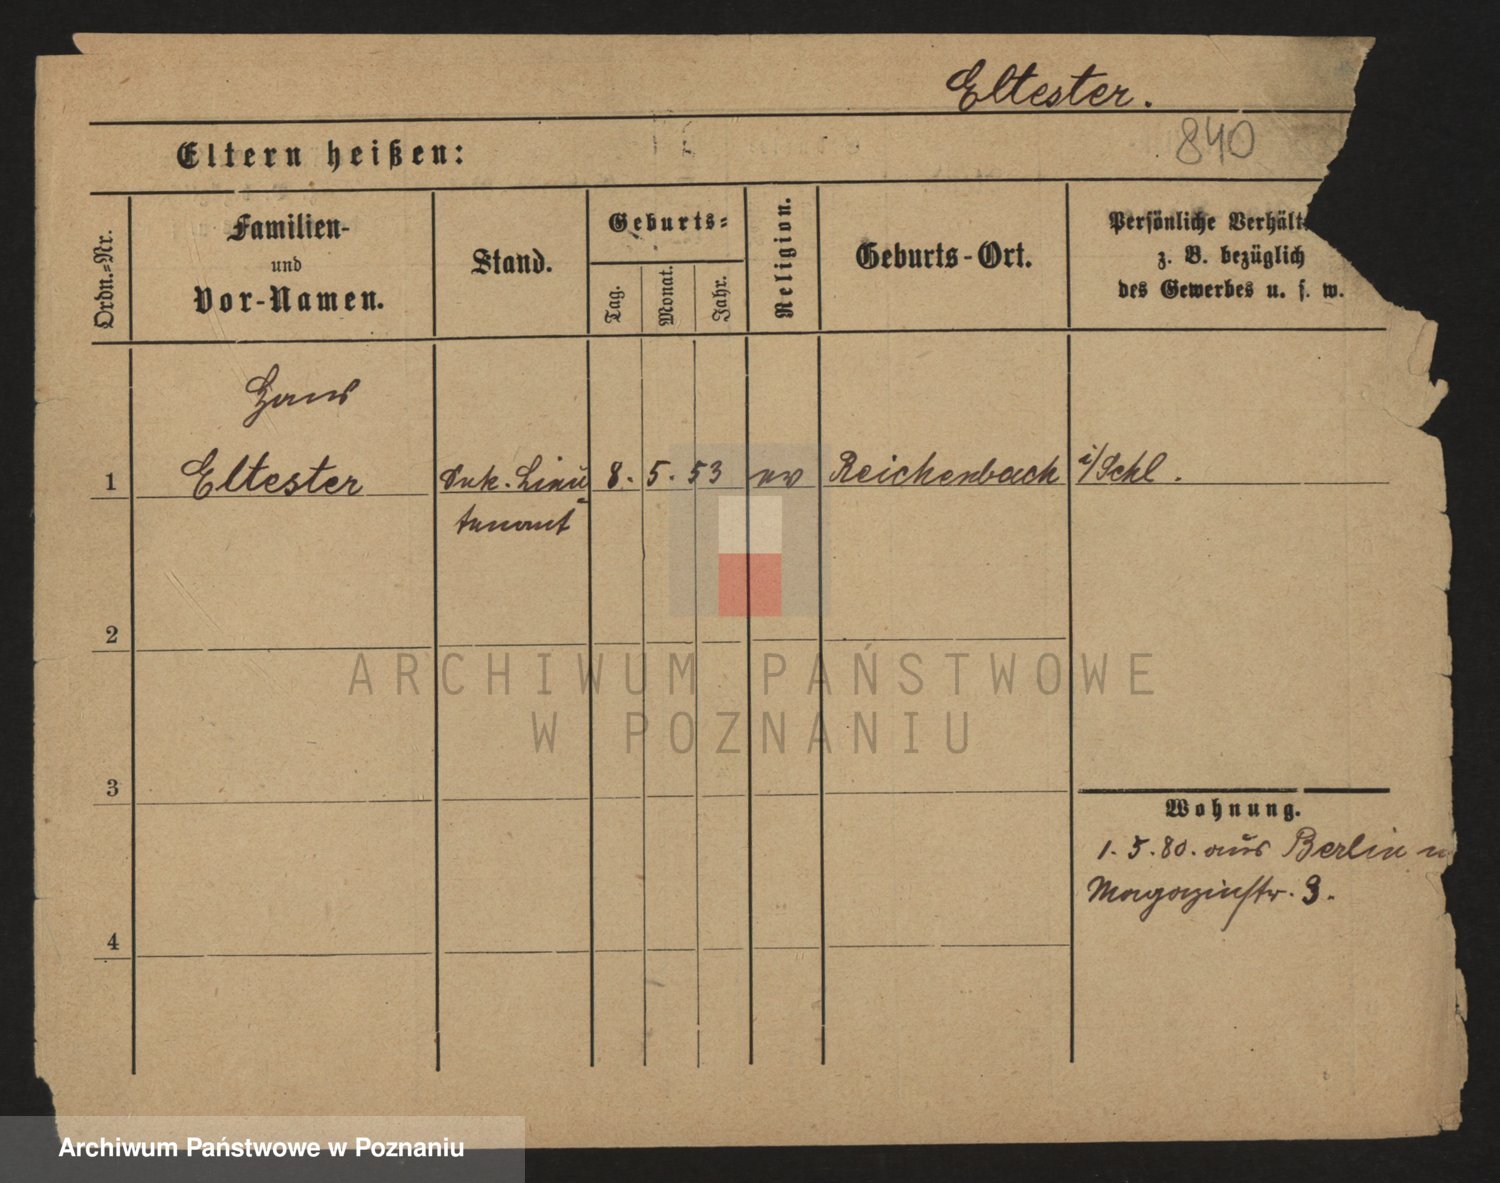 Eltester.
840
Eltern heißen:
Ordn.=Nr.
Familien-
und
Vor-Namen.
Stand.
Geburts=
Tag.
Monat.
Jahr.
Religion.
Geburts-Ort.
Persönliche Verhält
z. B. bezüglich
des Gewerbes u. s. w.
Hans
1 Eltester Sek. Lieu 8. 5. 53 ev Reichenbach i/Schl.
tenant
2
3
Wohnung.
1. 5. 80. aus Berlin n
Magazinstr. 3.
4
ARCHIWUM PAŃSTWOWE
W POZNANIU
Archiwum Państwowe w Poznaniu